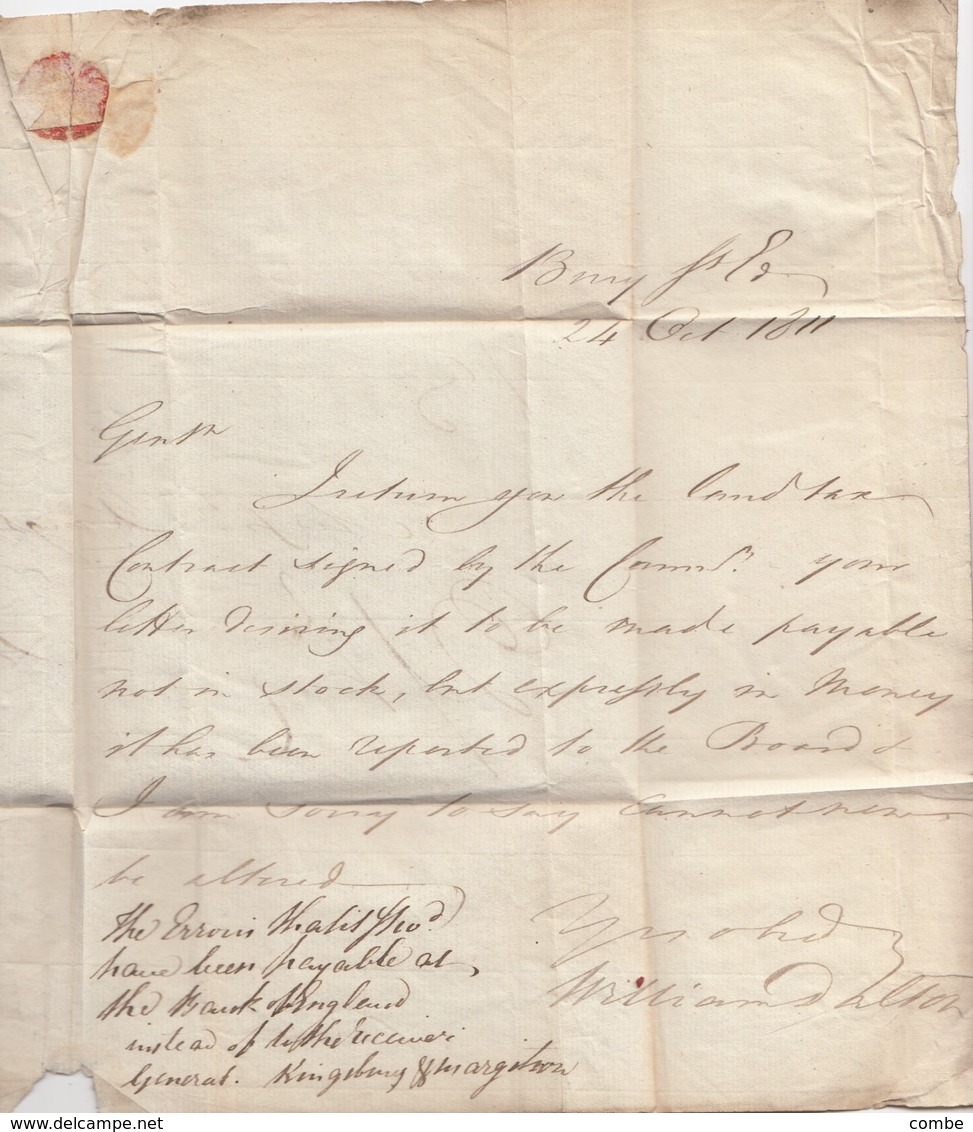 Bury St Ed
24 Oct 1811
Gentn
I return you the land tax
Contract signed by the Commrs. your
letter desiring it to be made payable
not in stock, but expressly in Money
it has been reported to the Board &
I am sorry to say cannot now
be altered
The Error is that it shod
have been payable at
the Bank of England
instead of to the Receiver
General. Kingsbury & Margitson
Yrs obed
William Dalton
combe
www.delcampe.net
combe